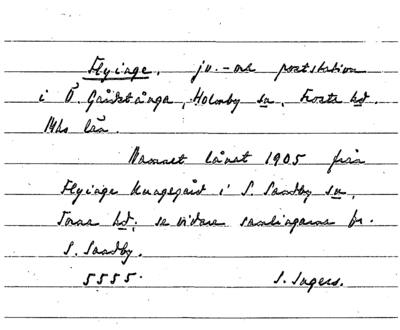 Flyinge, jv.- och poststation
i Ö. Gårdstånga, Holmby sn, Frosta hd.
Mhs län.
Namnet lånat 1905 från
Flyinge Kungsgård i S. Sandby sn,
Torna hd; se vidare samlingarna fr.
S. Sandby.
5555. S. Ingers.